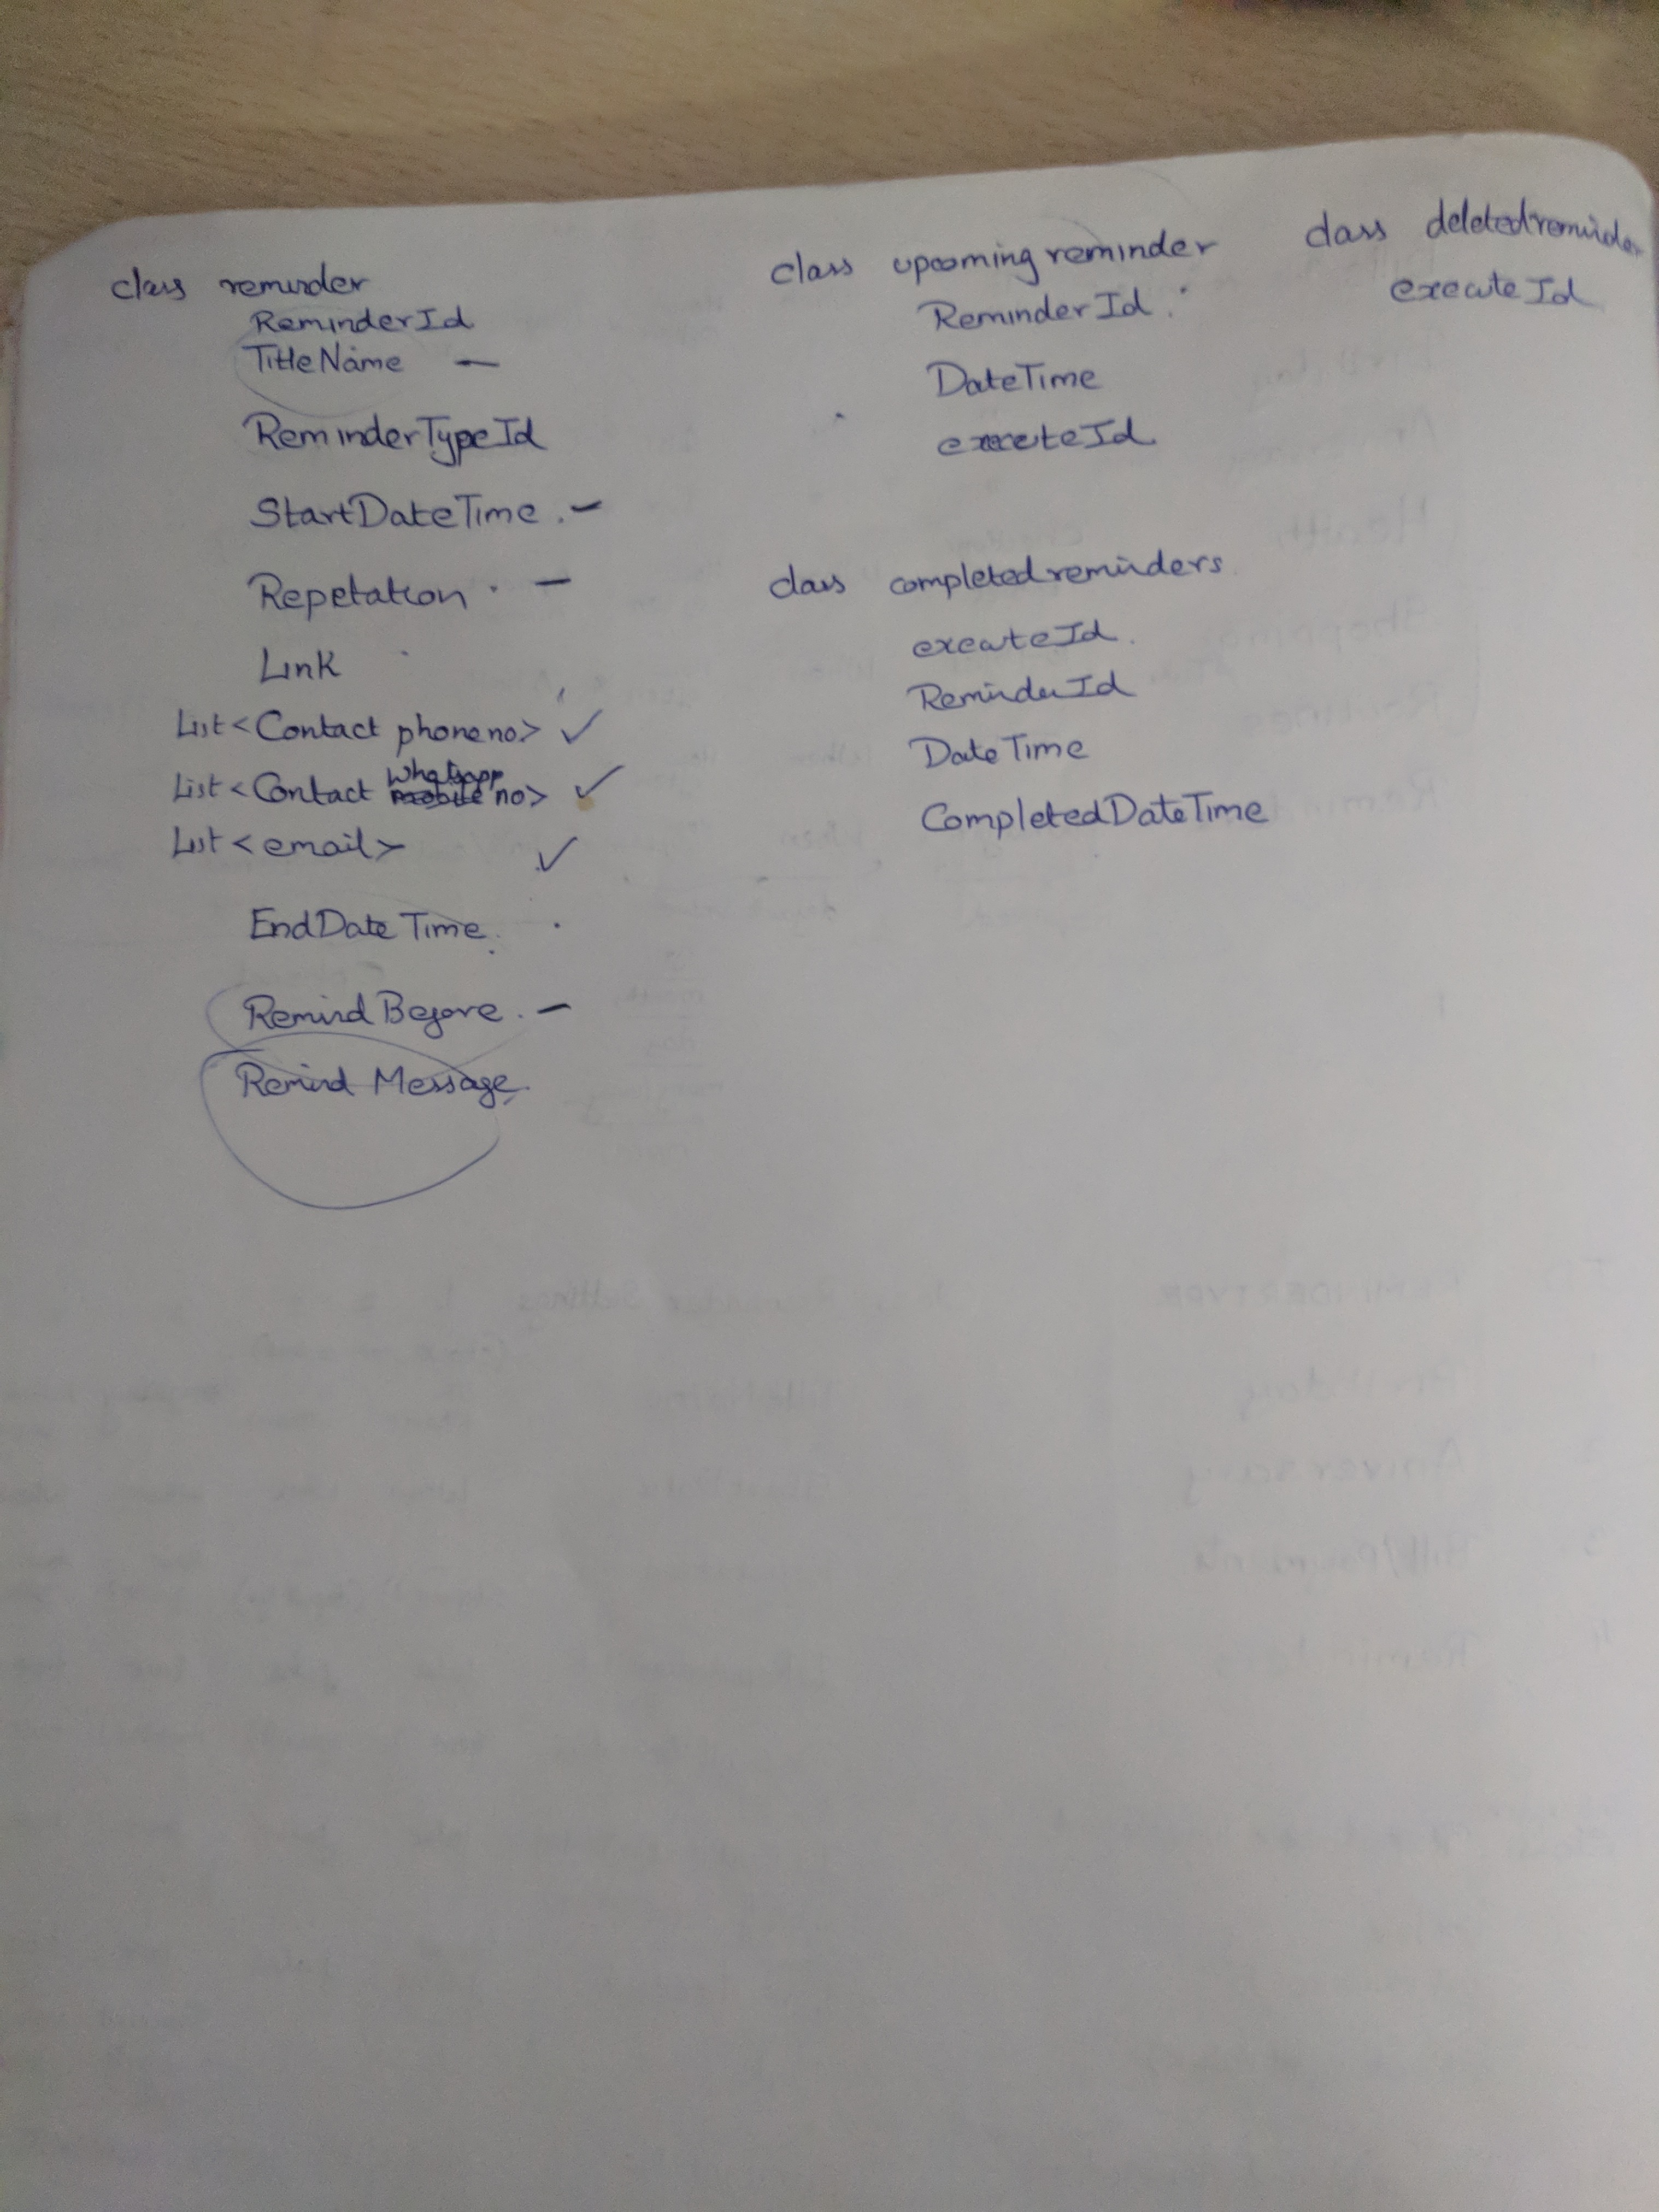 class reminder
ReminderId
TitleName —
ReminderTypeId
StartDateTime . –
Repetation . –
Link
List <Contact phoneno> ✓
List <Contact whatsapp no> ✓
List <email> ✓
EndDateTime .
Remind Before . –
Remind Message.
class upcoming reminder
ReminderId .
DateTime
executeId
class completedreminders
executeId .
ReminderId
DateTime
CompletedDateTime
class deletedreminder
executeId